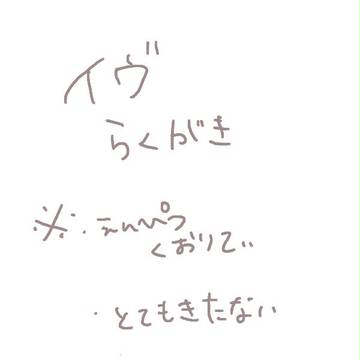 イヴ
らくがき
※・えんぴつ
くおりてぃ
・とてもきたない